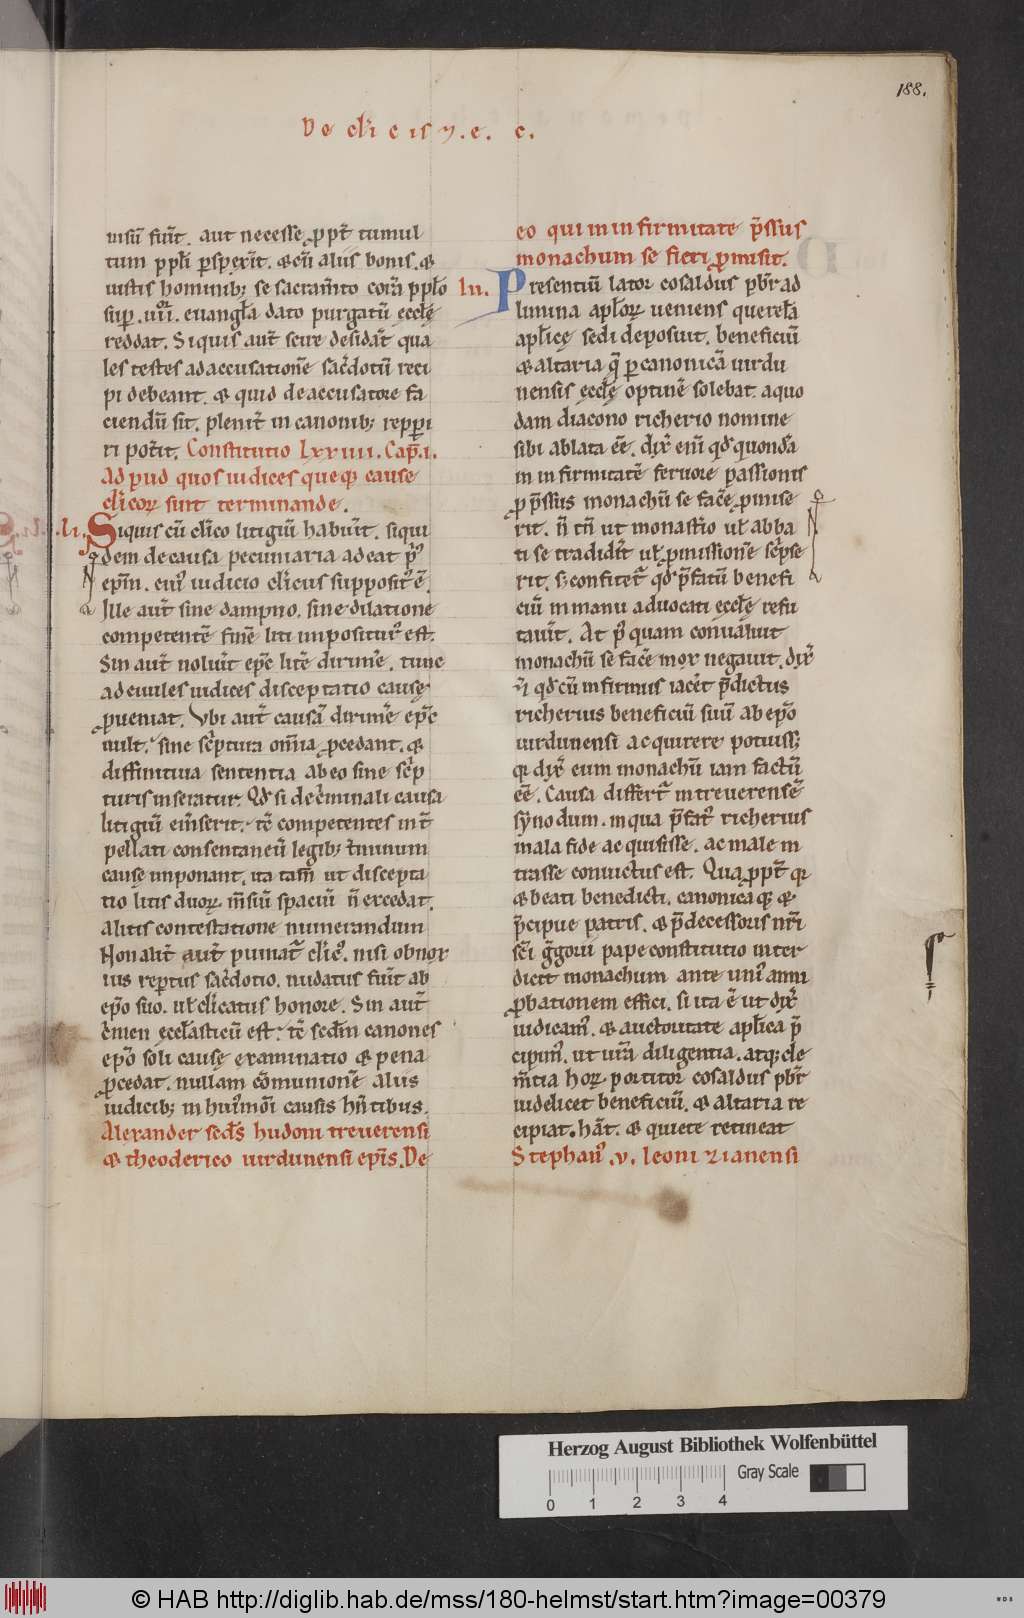 188.
De cl̅icis 7.e. c.
uisū fūit. aut necesse ꝓpt̅ tumul
tum ppl̅i ꝑspex̅it. & cū aliis bonis. &
iustis hominib; se sacram̅to corā ppl̅o
sup̅. uii. euangl̅a dato purgatū ęccl̅ę
reddat. Siquis aut̅ scire desid̅at qua
les testes ad accusationē sac̅dotū reci
pi debeant. & quid de accusatore fa
ciendū sit. plenit̅ in canonib; repperi
ri pot̅it. Constitutio Lxxiiii. Cap̅.i.
Ad ꝑud quos iudices queq; cause
cl̅icoꝝ sint terminande.
.li. Siquis cū cl̅ico litigiū habūit. siqui
dem de causa pecuniaria adeat p̅'
ep̅m. cui' iudicio cl̅icus supposit' ē.
Ille aut̅ sine dampno. sine dilatione
competentē finē liti impositur' est.
Sin aut̅ nolūit ep̅c litē dirim̅e. tunc
ad ciuiles iudices disceptatio causę
ꝓueniat. Vbi aut̅ causā dirim̅e ep̅c
uult. sine sc̅ptura om̅ia ꝓcedant. &
diffinitiua sententia ab eo sine sc̅p
turis inseratur. Qd̅ si de c̅minali causa
litigiū em̅serit. tē competentes int̅
pellati consentaneū legib; t̅minum
causę imponant. ita tam̅ ut discepta
tio litis duoꝝ m̅siū spaciū n̅ excedat.
a litis contestatione numerandum
Non alit̅ aut̅ puniat̅ cl̅ic'. nisi obnox
ius reptus sac̅dotio. nudatus fūit ab
ep̅o suo. ul̅ cl̅icatus honore. Sin aut̅
c̅men ęccl̅asticū est. tē secd̅m canones
ep̅o soli causę examinatio & pena
ꝓcedat. nullam cōmunionē aliis
iudicib; in hui'mōi causis hn̅tibus.
Alexander secd̅s hudoni treuerensi
& theoderico uirdunensi ep̅is. De
eo qui in infirmitate p̅ssus
monachum se fieri ꝓmisit.
lii. Presentiū lator cosaldus pb̅r ad
limina apl̅oꝝ ueniens querel̅a
apl̅icę sedi deposuit. beneficiū
& altaria q̅ ꝑ canonicā uirdu
nensis ęccl̅ę optinē solebat. a quo
dam diacono richerio nomine
sibi ablata ēē. dix̅ eni̅ qd̅ quonda̅
in infirmitatē feruore passionis
p̅ p̅ssus monachū se fac̅e ꝓmise
rit. n̅ tn̅ ut monast̅io ul̅ abba
ti se tradid̅it ul̅ ꝓmissionē sc̅pse
rit. s; confitet̅ qd̅ p̅fatū benefi
ciū in manu aduocati ęccl̅ę refu
tauit̅. At p' quam conualuit
monachū se fac̅e mox negauit. dix̅
n̅i qd̅ cū infirmus iac̅et p̅dictus
richerius beneficiū suū ab ep̅o
uirdunensi acquirere potuiss;
q; dix̅ eum monachū iam factū
ēē. Causa differt̅ in treuerensē
sȳnodum. in qua p̅fat' richerius
mala fide acquisisse. ac male in
trasse conuictus est. Qua ꝓpt̅ q;
& beati benedicti. canonica q; &
p̅cipue patris. & p̅decessoris nr̅i
sc̅i g̅gorii pape constitutio inter
dicit monachum ante uni' anni
ꝓbationem effici. si ita ē ut dix̅
iudicam'. & auctoritate apl̅ica p̅
cipim'. ut ur̅a diligentia. atq; cle
m̅tia hoꝝ portitor cosaldus pb̅r
uidelicet beneficiū. & altaria re
cipiat. hāt. & quiete retineat
Stephan' .v. leoni zianensi
Herzog August Bibliothek Wolfenbüttel
Gray Scale
0 1 2 3 4
© HAB http://diglib.hab.de/mss/180-helmst/start.htm?image=00379